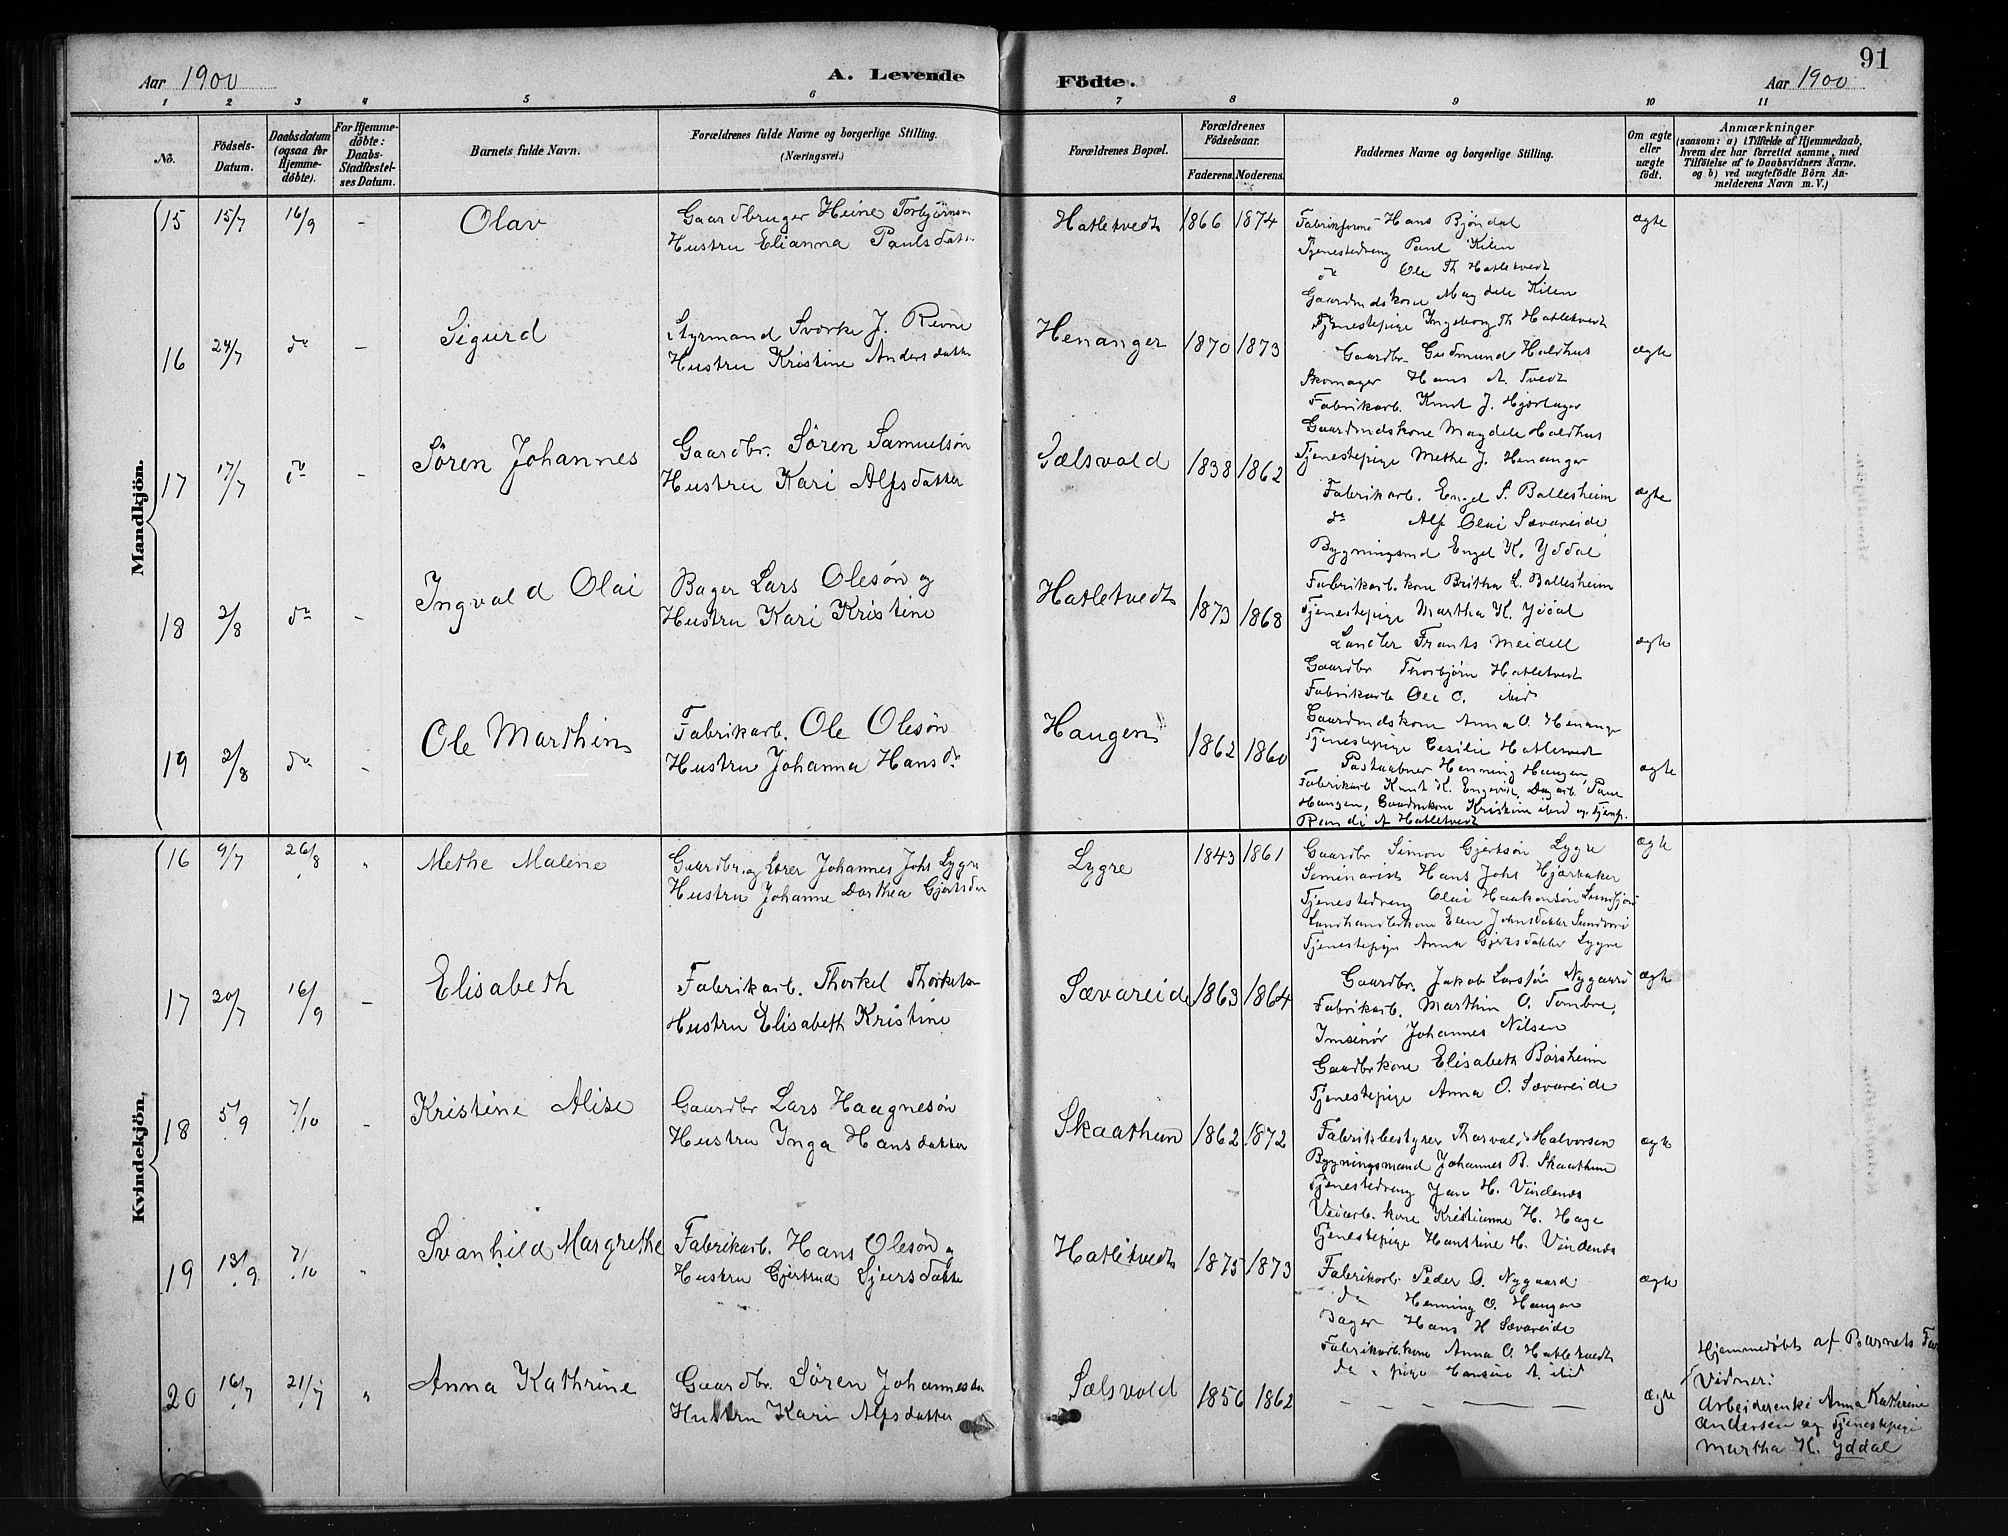 91
Aar 1900
A. Levende Födte.
Aar 1900
1 2 3 4 5 6 7 8 9 10 11
No.
Födsels-Datum.
Daabsdatum (ogsaa for Hjemme-döbte).
For Hjemme-döbte: Daabs-Stadfæstel-ses Datum.
Barnets fulde Navn.
Forældrenes fulde Navne og borgerlige Stilling.
(Næringsvei.)
Forældrenes Bopæl.
Forældrenes Födselsaar.
Faderens. Moderens.
Faddernes Navne og borgerlige Stilling.
Om ægte eller uægte födt.
Anmærkninger
(saasom: a) i Tilfælde af Hjemmedaab,
hvem der har forrettet samme, med
Tilföielse af to Daabsvidners Navne,
og b) ved uægtefödte Börn An-
melderens Navn m. V.)
Mandkjön.
15 15/7 16/9 - Olav
Gaardbruger Heine Torbjørnsøn
Hustru Elianna Paulsdatter
Hatletvedt 1866 1874
Hans Bjöndal
Tjenestedreng Paul Kilen
do Ole Th Hatletvedt
Gaardmdskone Magdele Kilen
Tjenestepige Ingeborg Th Hatletvedt
ægte
16 24/7 do - Sigurd
Styrmand Sverke J. Revne
Hustru Kristine Andersdatter
Henanger 1870 1873
Gaardbr. Gudmund Haldhus
Skomager Hans A. Tvedt
Fabrikarb. Knut J. Hjortager
Gaardmdskone Magdele Haldhus
Tjenestepige Methe J. Henanger
ægte
17 17/7 do - Sören Johannes
Gaardbr. Sören Samuelsön
Hustru Kari Alfsdatter
Sælsvold 1838 1862
Fabrikarb. Engel S. Ballesheim
do Alf Olai Sævareide
Bygningsmd Engel K. Yddal
Fabrikarb.kone Britha L. Ballesheim
Tjenestepige Martha K. Yddal
ægte
18 2/8 do - Ingvald Olai
Bager Lars Olesön og
Hustru Kari Kristine
Hatletvedt 1873 1868
Landler Frants Meidell
Gaardbr Thorbjörn Hatletvedt
Fabrikarb Ole O. ibid
Gaardmdskone Anna O. Henanger
Tjenestepige Cesilie Hatletvedt
ægte
19 2/8 do - Ole Marthin
Fabrikarb. Ole Olesön
Hustru Johanna Hansdr
Haugen 1862 1860
Postaabner Henning Haugen,
Fabrikarb Knut K. Engevik, Dagarb. Paul
Haugen, Gaardmkone Kristine ibid og Tjenp.
Randi A Hatletvedt
ægte
Kvindekjön.
16 9/7 26/8 " Methe Malene
Gaardbr. og Lærer Johannes Johs Lygre
Hustru Johanne Dorthea Gjertsdtr
Lygre 1843 1861
Gaardbr Simon Gjertsön Lygre
Seminarist Hans Johs Hjertaker
Tjenestedreng Olai Haakonsön
Landhandlerkone Elen Johnsdatter Sundvor
Tjenestepige Anna Gjertsdatter Lygre
ægte
17 20/7 16/9 - Elisabeth
Fabrikarb. Thorkel Thorkelsen
Hustru Elisabeth Kristine
Sævareide 1863 1864
Gaardbr. Jakob Larssön Nygaard
Fabrikarb. Marthin O. Tombre,
Johannes Nilsen
Gaardbrkone Elisabeth Börsheim
Tjenestepige Anna O. Sævareide
ægte
18 5/9 7/10 - Kristine Alise
Gaardbr Lars Haagnesön
Hustru Inga Hansdatter
Skaathun 1862 1872
Fabrikbestyrer Thorvald Halvorsen
Bygningsmand Johannes B. Skaathun
Tjenestedreng Jan H. Vindenes
Veiarb.kone Kristianne H. Hage
Tjenestepige Hanstine H. Vindenes
ægte
19 13/9 7/10 " Svanhild Margrethe
Fabrikarb. Hans Olesön og
Hustru Gjertrud Sjursdatter
Hatletvedt 1875 1873
Fabrikarb. Peder O. Nygaard
do Henning O. Haugen
Bager Hans H Sævareide
Fabrikarbkone Anna O. Hatletvedt
do " pige Hansine A. ibid
ægte
20 16/7 21/7 " Anna Kathrine
Gaardbr. Sören Johannesen
Hustru Kari Alfsdatter
Sælsvold 1856 1862
— — — — — —
ægte
Hjemmedøbt af Barnets Far
Vidner:
Arbeiderenke Anna Kathrine
Andersen og Tjenestepige
Martha K. Yddal